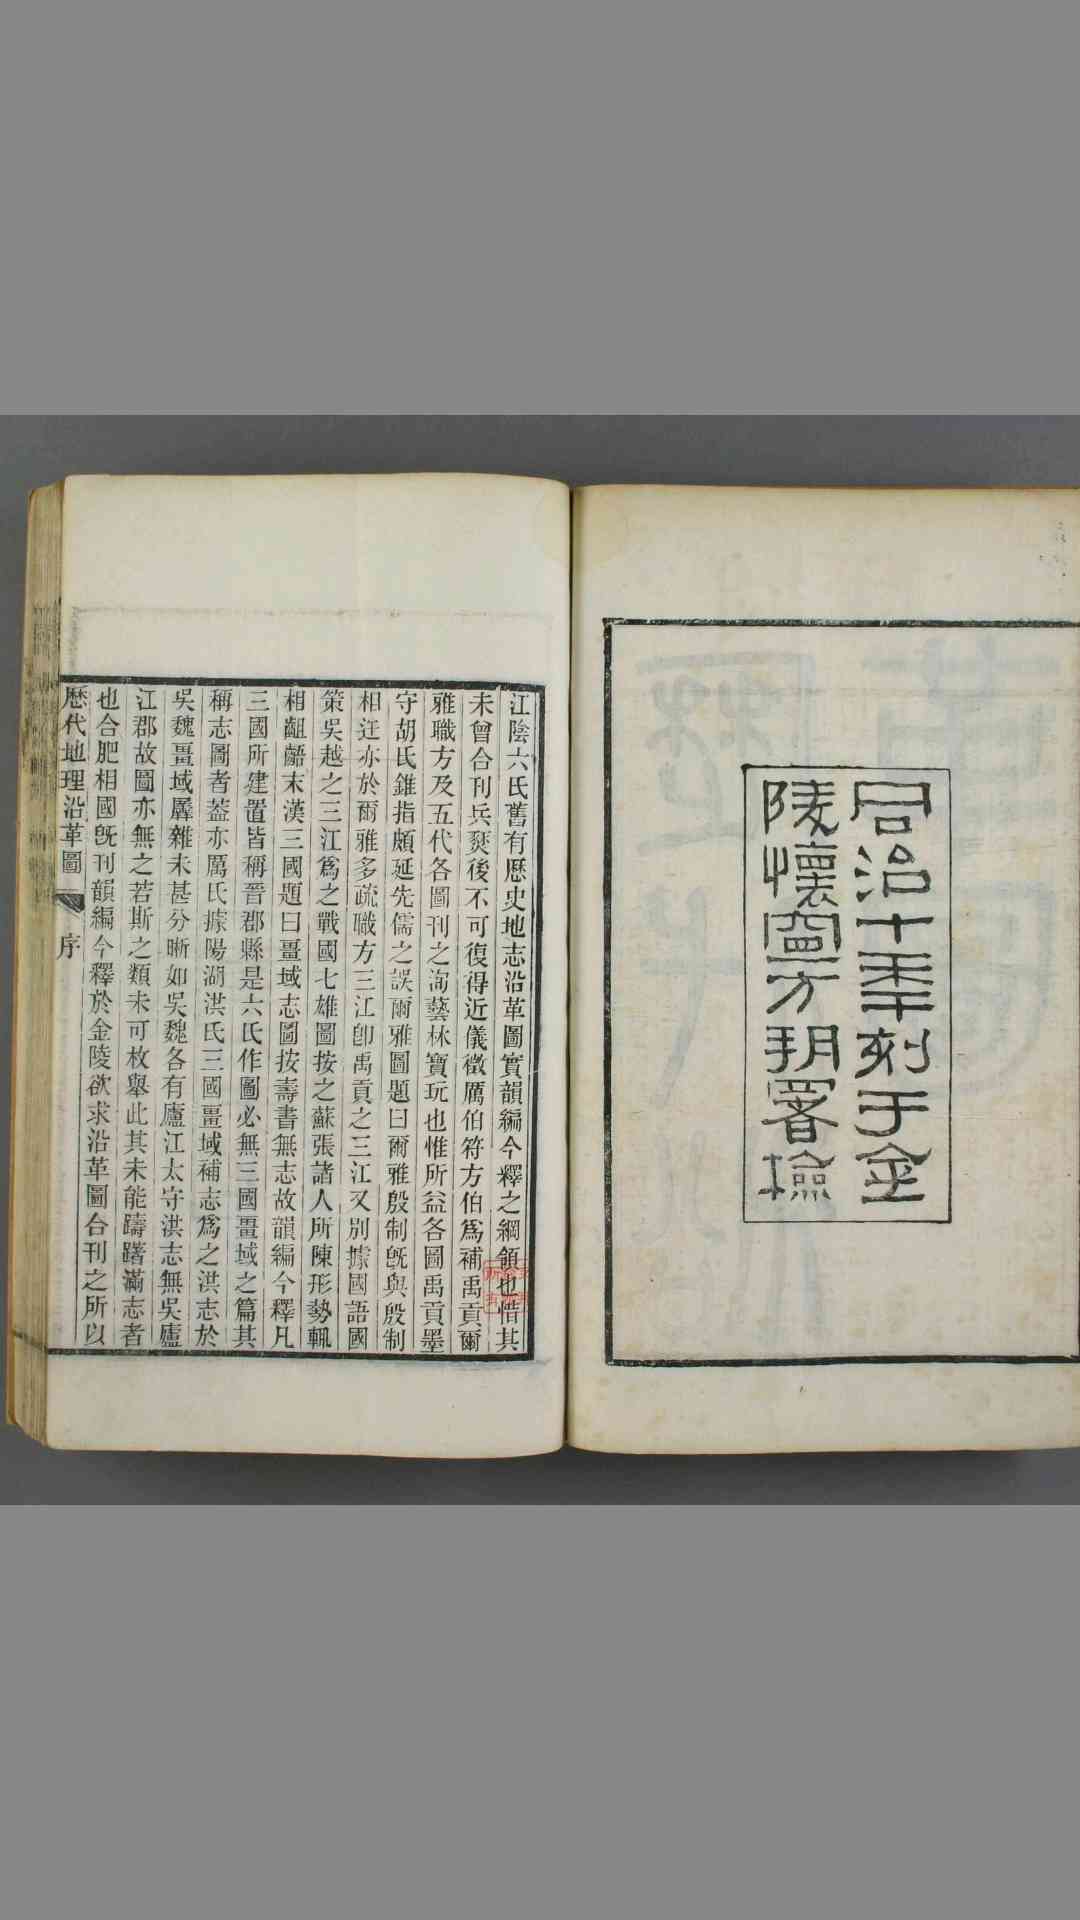 同治十年刻于金
陵懷寧方朔署檢
江陰六氏舊有歷史地志沿革圖實韻編今釋之綱領也惜其
未曾合刊兵燹後不可復得近儀徵厲伯符方伯為補禹貢爾
雅職方及五代各圖刊之洵藝林寶玩也惟所益各圖禹貢墨
守胡氏錐指頗延先儒之誤爾雅圖題曰爾雅殷制既與殷制
相迕亦於爾雅多疏職方三江卽禹貢之三江又別據國語國
策吳越之三江為之戰國七雄圖按之蘇張諸人所陳形勢輒
相齟齬末漢三國題曰畺域志圖按壽書無志故韻編今釋凡
三國所建置皆稱晉郡縣是六氏作圖必無三國畺域之篇其
稱志圖者葢亦厲氏據陽湖洪氏三國畺域補志為之洪志於
吳魏畺域羼雜未甚分晰如吳魏各有廬江太守洪志無吳廬
江郡故圖亦無之若斯之類未可枚舉此其未能躊躇滿志者
也合肥相國旣刊韻編今釋於金陵欲求沿革圖合刊之所以
歷代地理沿革圖 序